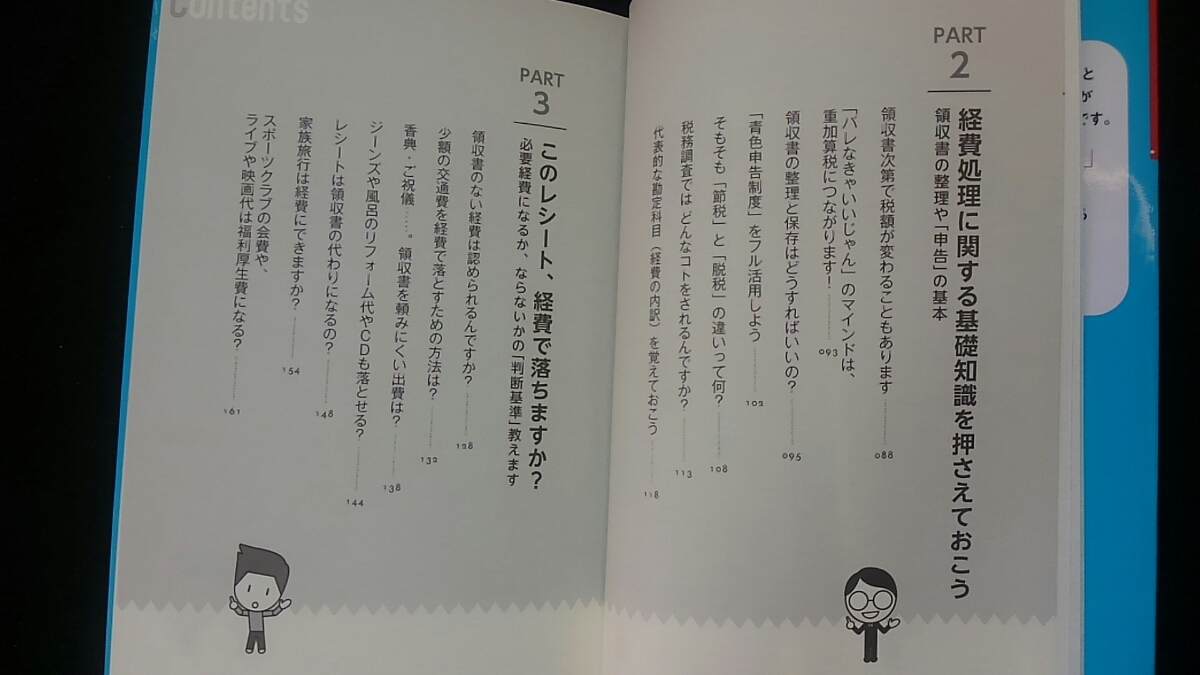 PART
2
経費処理に関する基礎知識を押さえておこう
領収書の整理や「申告」の基本
領収書次第で税額が変わることもあります 088
「バレなきゃいいじゃん」のマインドは、
重加算税につながります! 093
領収書の整理と保存はどうすればいいの? 095
「青色申告制度」をフル活用しよう 102
そもそも「節税」と「脱税」の違いって何? 108
税務調査では どんなコトをされるんですか? 113
代表的な勘定科目(経費の内訳)を覚えておこう 118
Contents
PART
3
このレシート、経費で落ちますか?
必要経費になるか、ならないかの「判断基準」教えます
領収書のない経費は認められるんですか? 128
少額の交通費を経費で落とすための方法は? 132
香典・ご祝儀……。領収書を頼みにくい出費は? 138
ジーンズや風呂のリフォーム代やCDも落とせる? 144
レシートは領収書の代わりになるの? 148
家族旅行は経費にできますか? 154
スポーツクラブの会費や、
ライブや映画代は福利厚生費になる? 161
と
が
です。
」